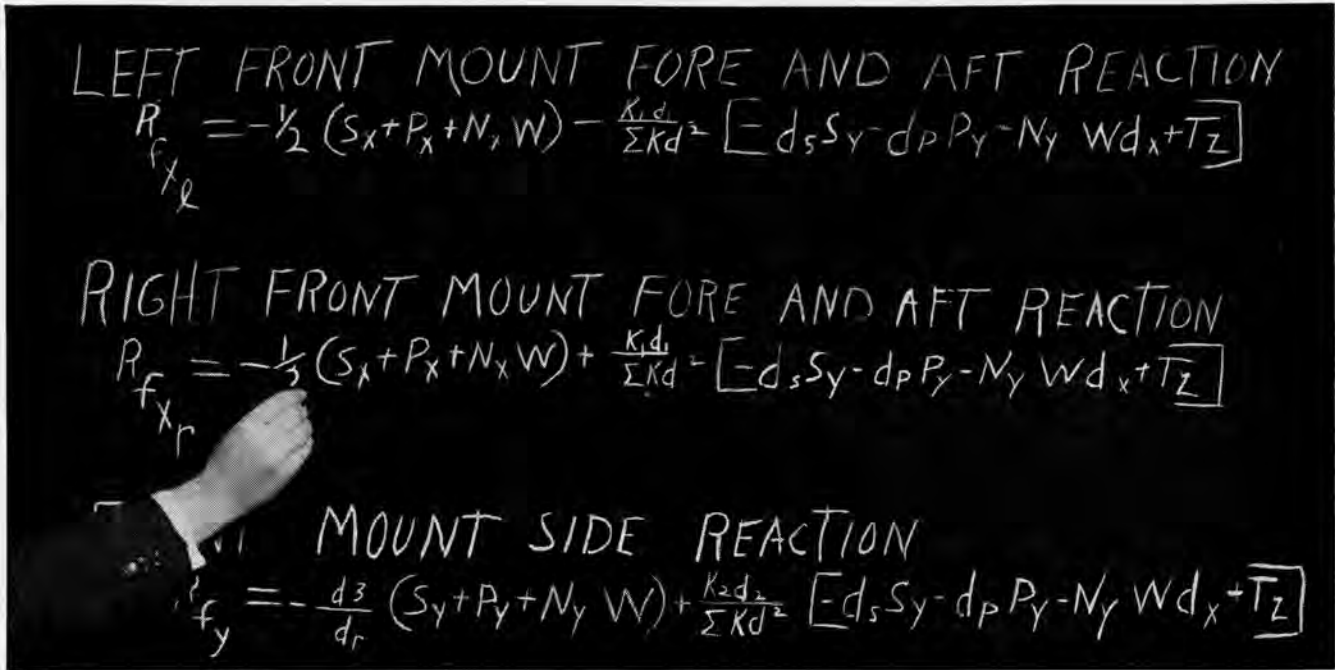 LEFT FRONT MOUNT FORE AND AFT REACTION
R_{f_{x_ℓ}} = -1/2 (S_x + P_x + N_x W) - K_1 d_1 / ΣKd² [-d_s S_y - d_P P_y - N_y W d_x + T_Z]
RIGHT FRONT MOUNT FORE AND AFT REACTION
R_{f_{x_r}} = -1/2 (S_x + P_x + N_x W) + K_1 d_1 / ΣKd² [-d_s S_y - d_P P_y - N_y W d_x + T_Z]
MOUNT SIDE REACTION
R_{f_y} = - d3 / d_r (S_y + P_y + N_y W) + K_2 d_2 / ΣKd² [-d_s S_y - d_P P_y - N_y W d_x + T_Z]